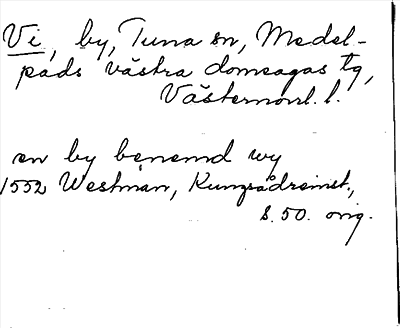 Vi, by, Tuna sn, Medel-
pads västra domsagas tg,
Västernorrl. l.
en by benemd wy
1552 Westman, Kungsådreinst.,
s. 50. orig.